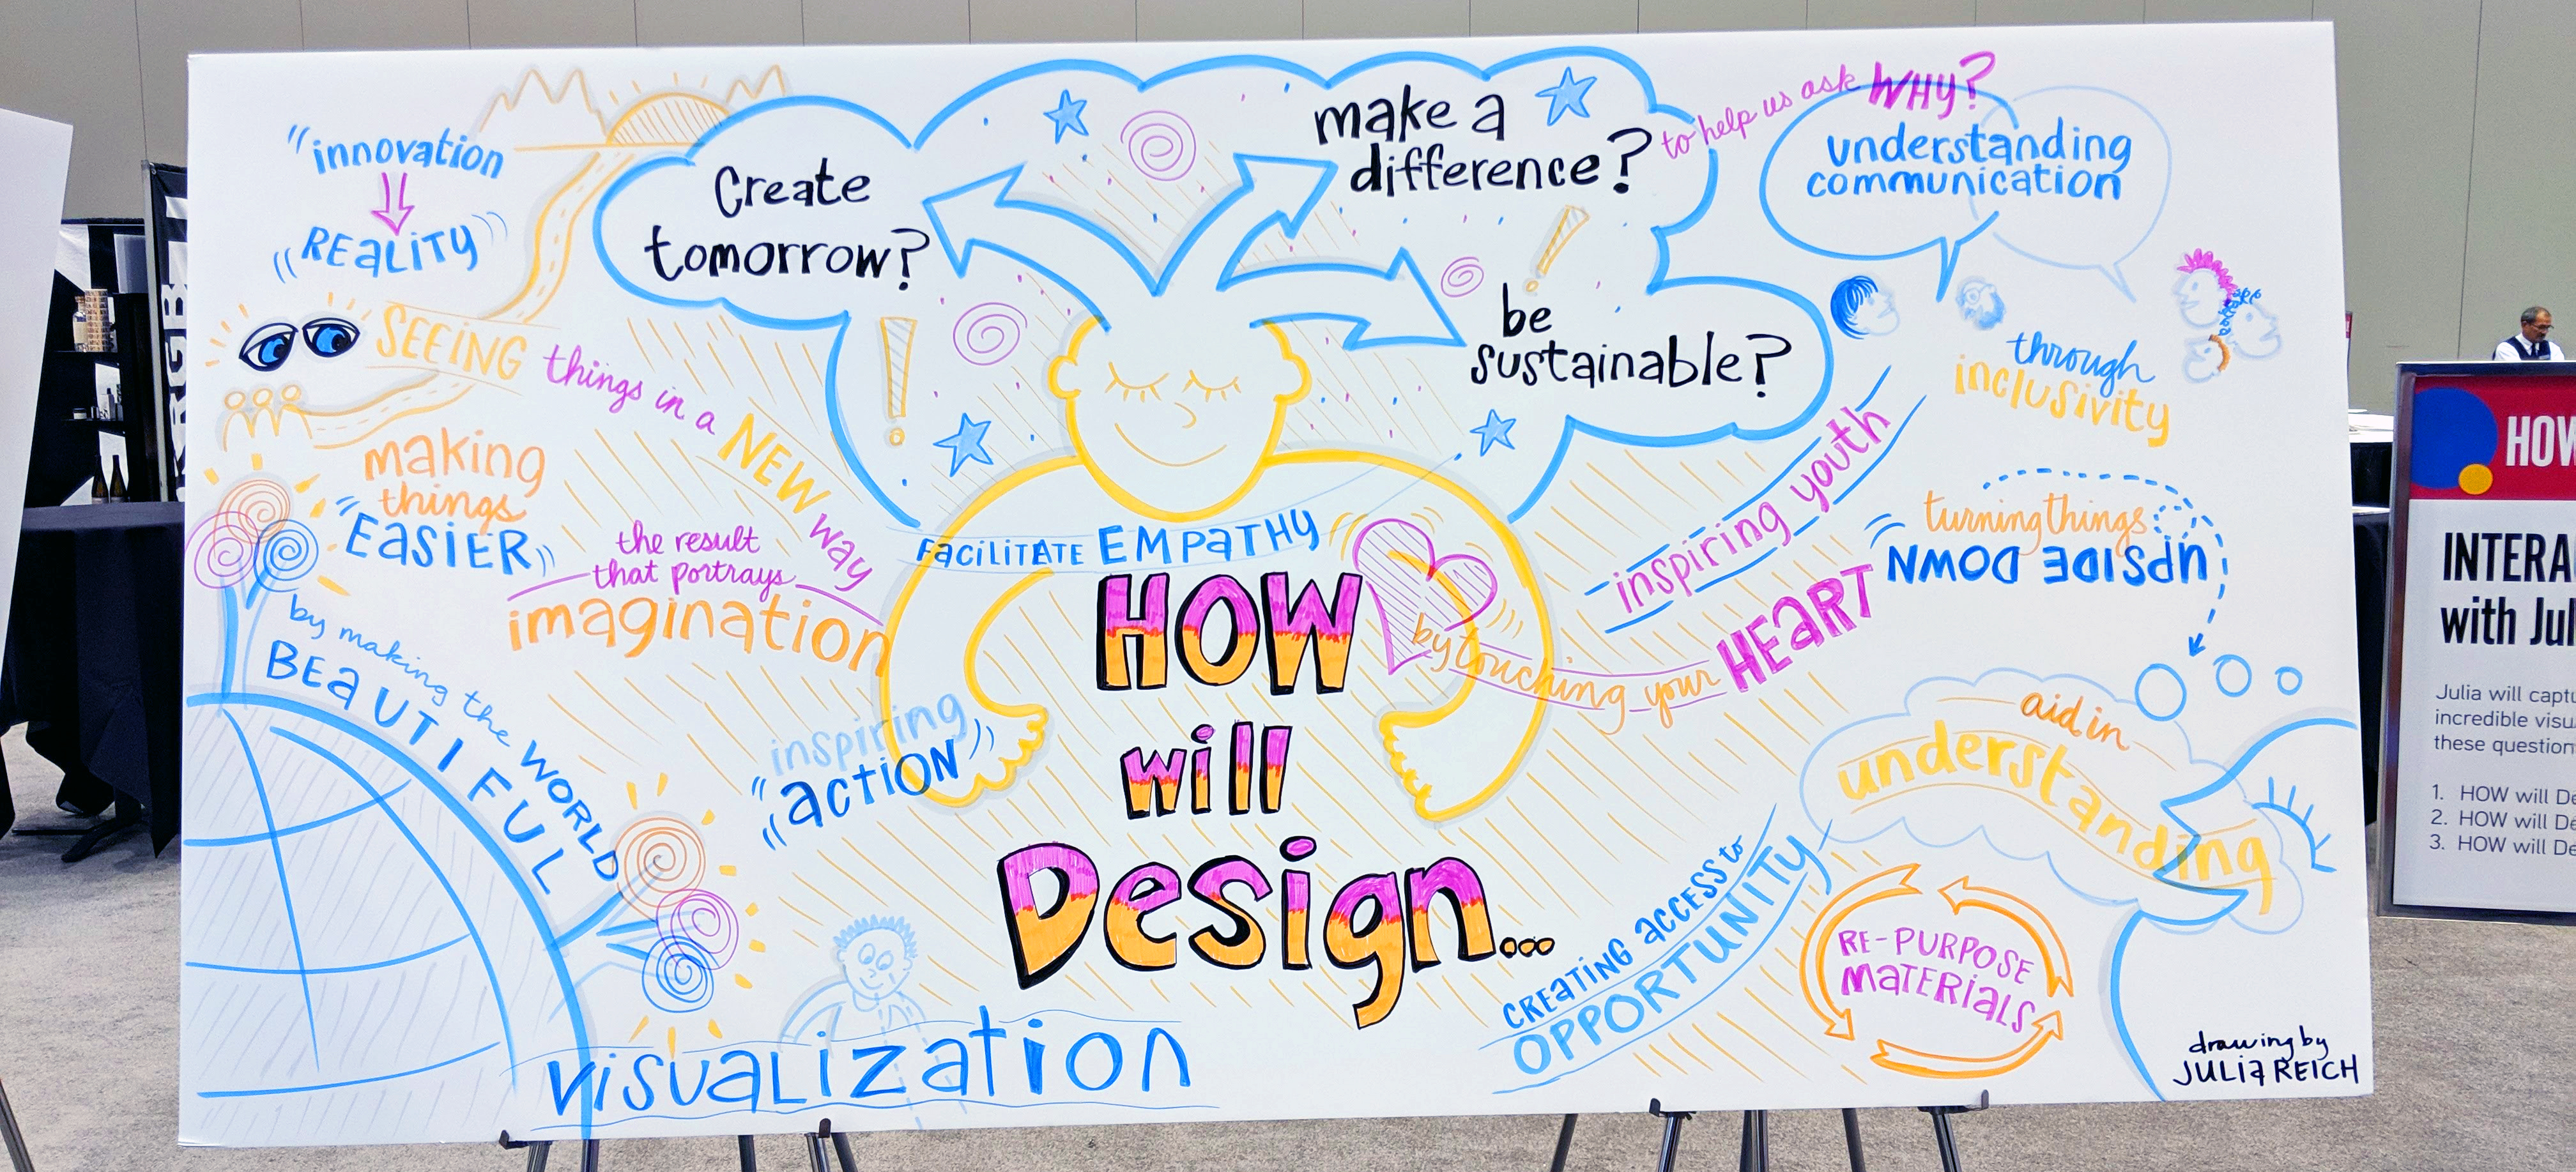 "innovation
"REALITY"
Create
tomorrow?
make a
difference?
be
sustainable?
to help us ask WHY?
understanding
communication
through
inclusivity
SEEING things in a NEW way
making
things
"EASIER"
the result
that portrays
imagination
by making the WORLD
BEAUTIFUL
inspiring
"action"
visualization
FACILITATE EMPATHY
HOW
will
Design...
by touching your HEART
inspiring youth
turning things
UPSIDE DOWN
aid in
understanding
CREATING ACCESS to
OPPORTUNITY
RE-PURPOSE
MATERIALS
drawing by
JULIA REICH
HOW
INTERA
with Jul
Julia will captu
incredible visu
these question
1. HOW will De
2. HOW will De
3. HOW will De